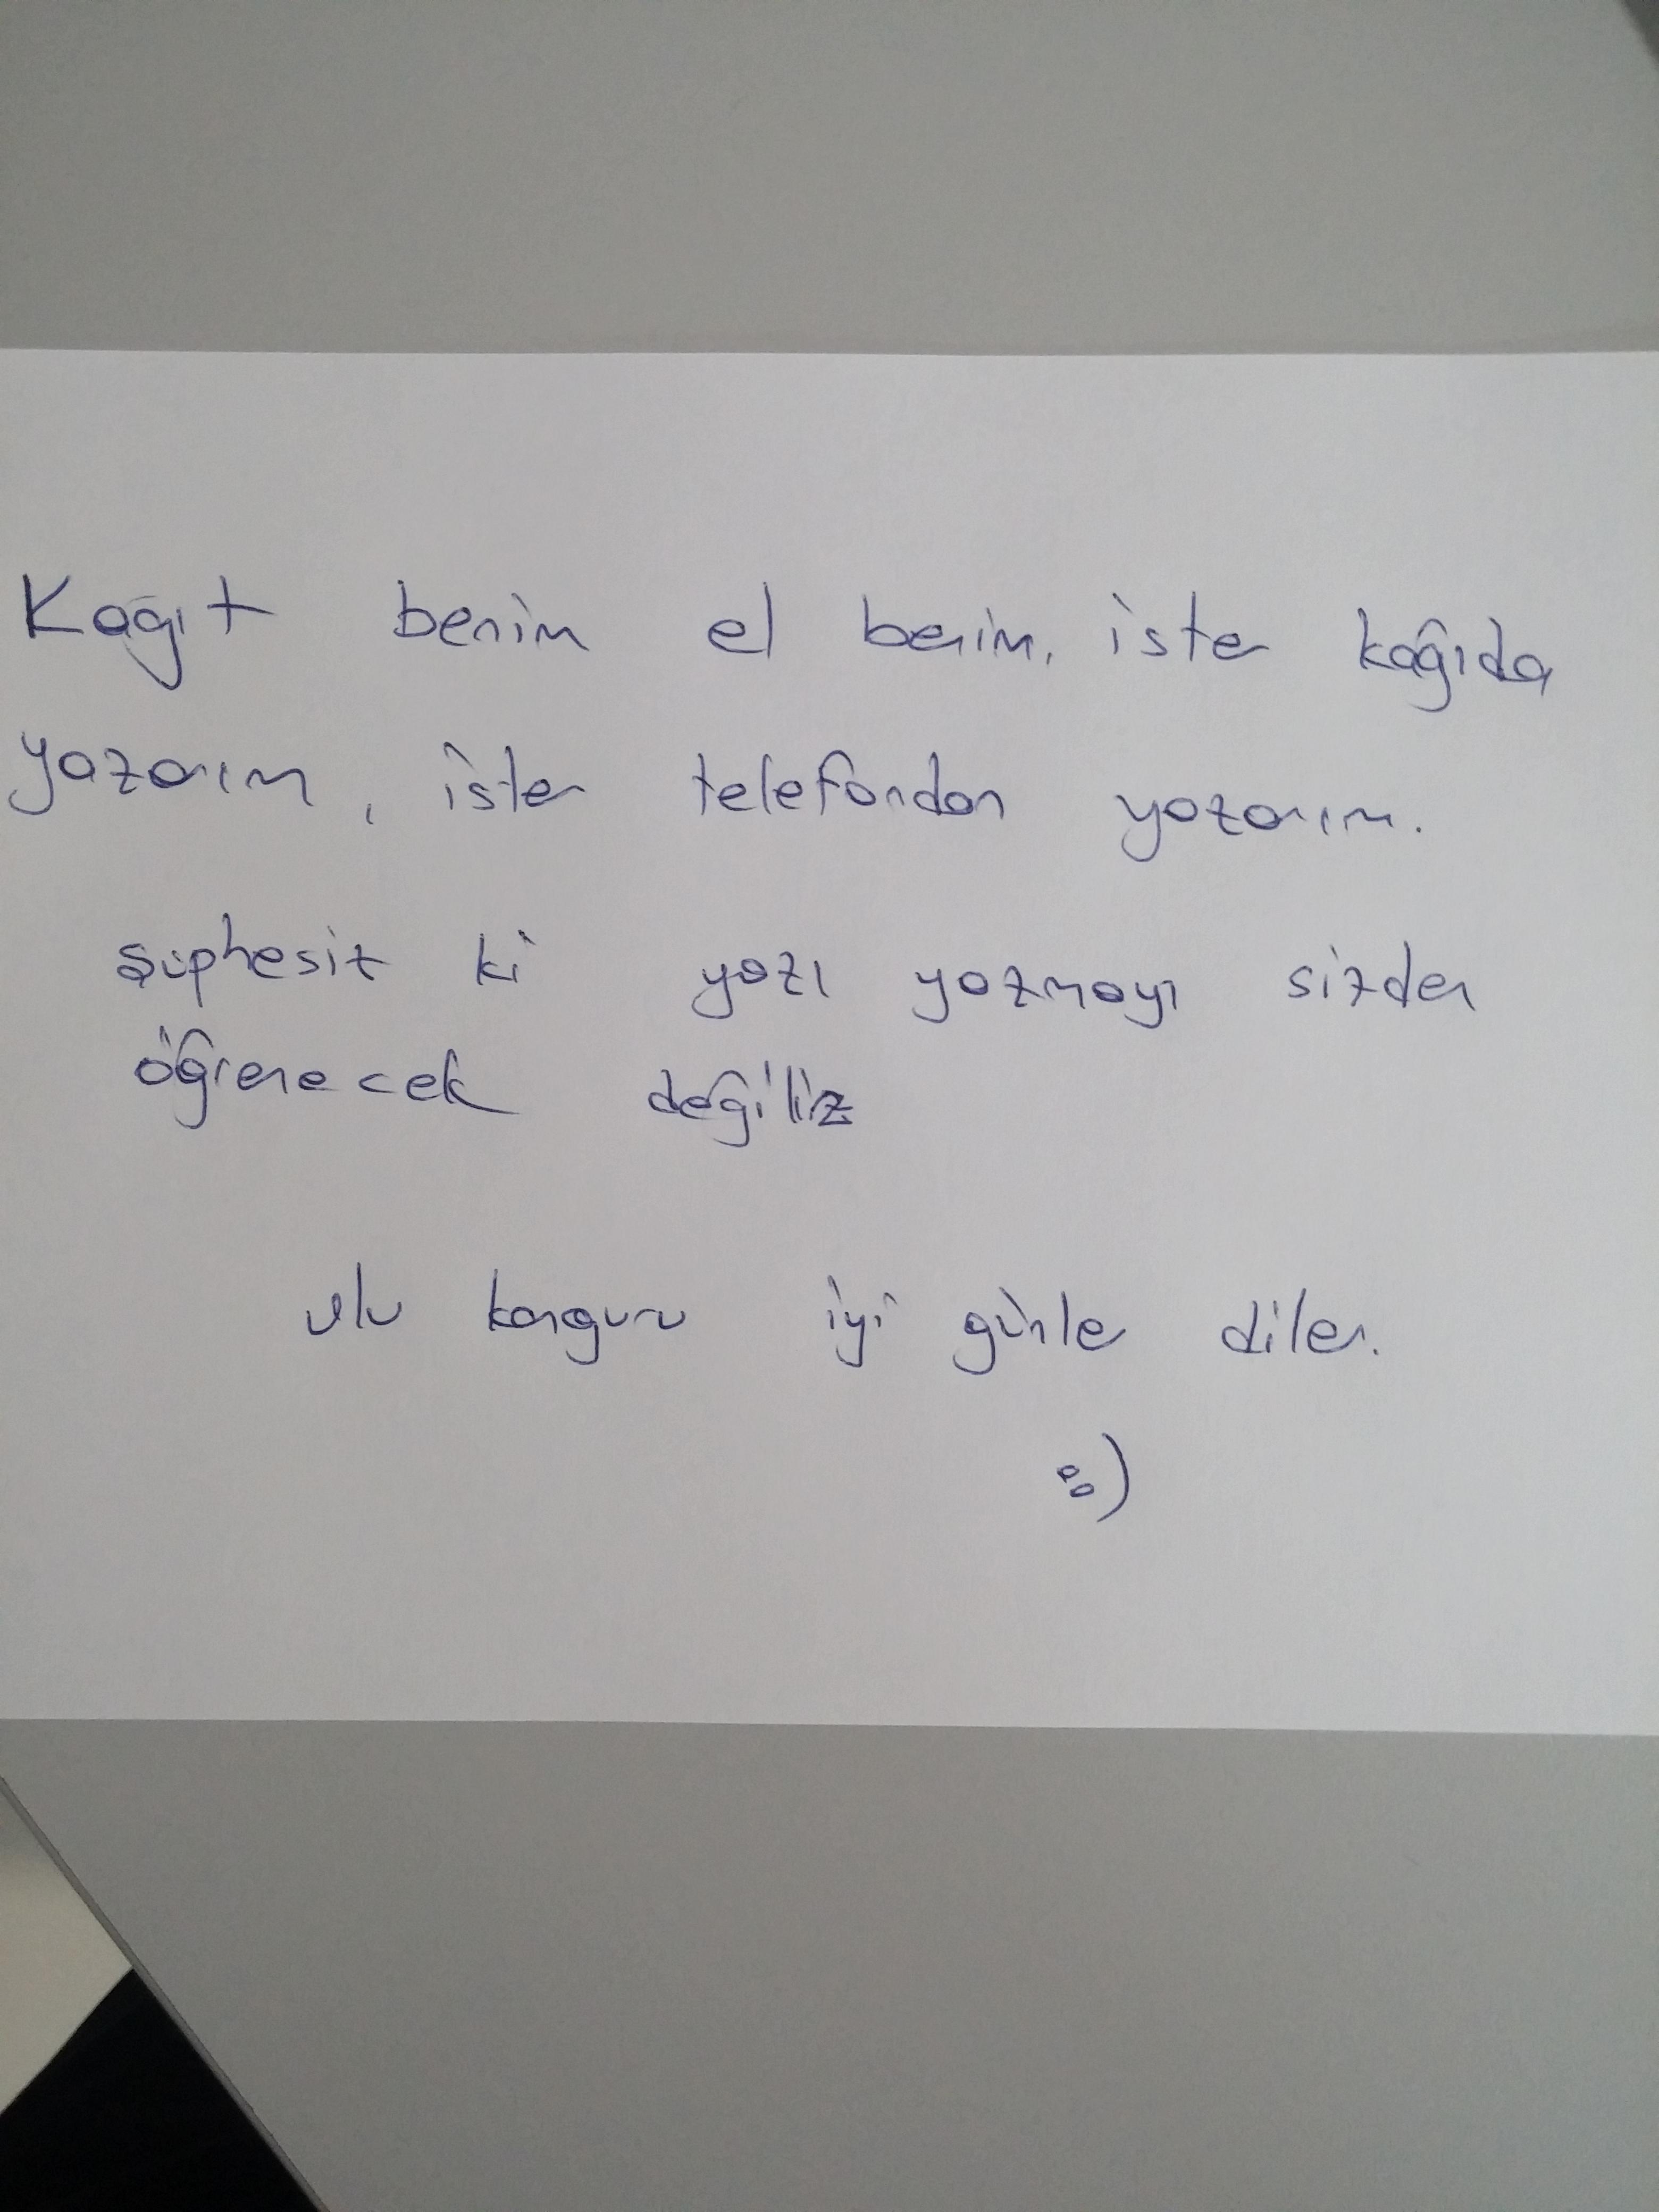 Kağıt benim el benim, ister kağıda
yazarım, ister telefondan yazarım.
şüphesiz ki yazı yazmayı sizden
öğrenecek değiliz
ulu kanguru iyi günler diler.
:)